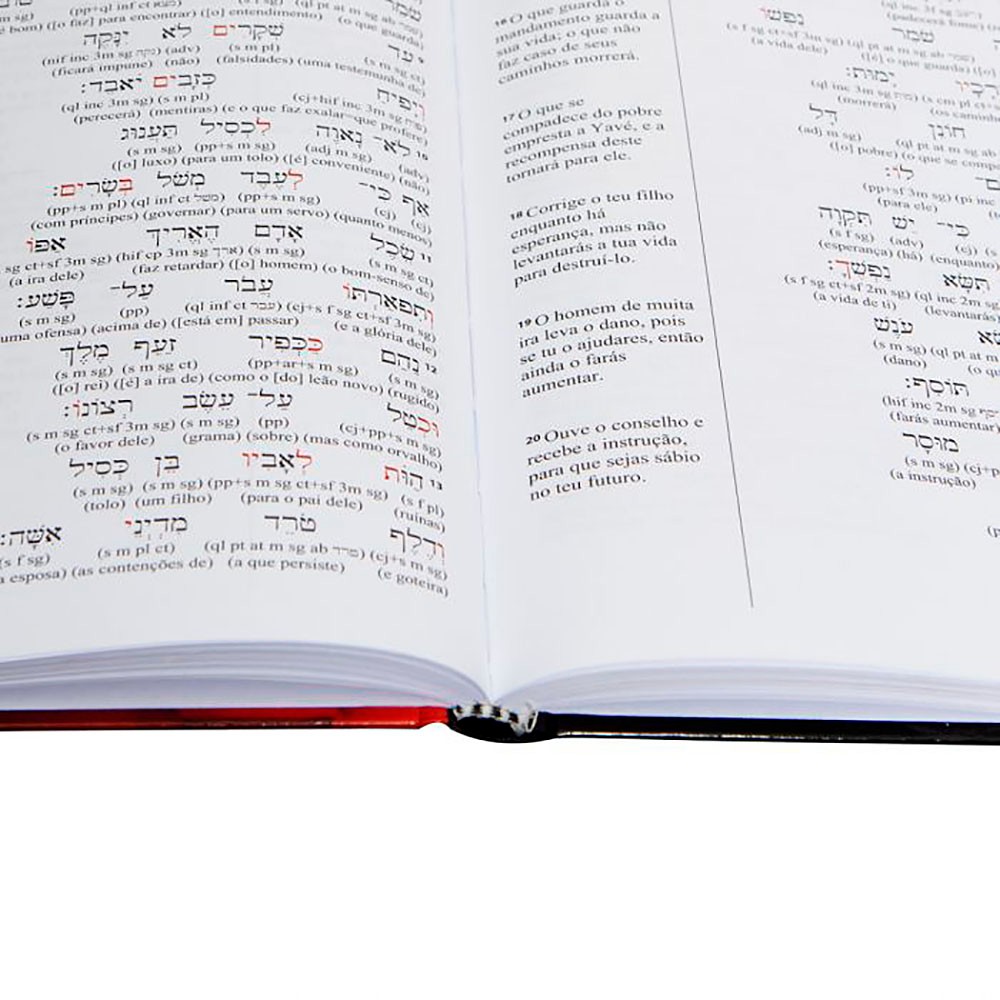 שֹׁמֵר
(pp+ql inf ct מצא) (s f sg) (ql pt at m sg ab שמר)
bom) ([o] faz) para encontrar) ([o] entendimento) (o que guarda)
⁹ עֵד שְׁקָרִים לֹא יִנָּקֶה
(nif inc 3m sg נקה) (adv) (s m pl) (s m sg ct)
(ficará impune) (não) (falsidades) (uma testemunha de)
וְיָפִיחַ כְּזָבִים יֹאבֵד׃
(ql inc 3m sg) (s m pl) (cj+hif inc 3m sg פוח)
(perecerá) (mentiras) (e o que faz exalar=que profere)
¹⁰ לֹא־ נָאוֶה לִכְסִיל תַּעֲנוּג
(s m sg) (pp+s m sg) (adj m sg) (adv)
([o] luxo) (para um tolo) ([é] conveniente) (não)
אַף כִּי־ לְעֶבֶד מְשֹׁל בְּשָׂרִים׃
(pp+s m pl) (ql inf ct משל) (pp+s m sg) (cj) (cj)
(com príncipes) (governar) (para um servo) (quanto menos)
¹¹ שֵׂכֶל אָדָם הֶאֱרִיךְ אַפּוֹ
sg ct+sf 3m sg) (hif cp 3m sg ארך) (s m sg) (s m sg ct)
(a ira dele) (faz retardar) ([o] homem) (o bom-senso de)
וְתִפאַרְתּוֹ עֲבֹר עַל־ פָּשַׁע׃
(s m sg) (pp) (ql inf ct עבר) (cj+s f sg ct+sf 3m sg)
uma ofensa) (acima de) ([está em] passar) (e a glória dele)
¹² נַהַם כַּכְּפִיר זַעַף מֶלֶךְ
(s m sg) (s m sg ct) (pp+ar+s m sg) (s m sg)
([o] rei) ([é] a ira de) (como o [do] leão novo) (rugido)
וּכְטַל עַל־ עֵשֶׂב רְצוֹנוֹ׃
(s m sg ct+sf 3m sg) (s m sg) (pp) (cj+pp+s m sg)
(o favor dele) (grama) (sobre) (mas como orvalho)
¹³ הַוֹּת לְאָבִיו בֵּן כְּסִיל
(s m sg) (s m sg) (pp+s m sg ct+sf 3m sg) (s f pl)
(tolo) (um filho) (para o pai dele) (ruínas)
וְדֶלֶף טֹרֵד מִדְיְנֵי אִשָּׁה׃
(s f sg) (s m pl ct) (ql pt at m sg ab טרד) (cj+s m sg)
a esposa) (as contenções de) (a que persiste) (e goteira)
16 O que guarda o
mandamento guarda a
sua vida; o que não
faz caso de seus
caminhos morrerá.
17 O que se
compadece do pobre
empresta a Yavé, e a
recompensa deste
tornará para ele.
18 Corrige o teu filho
enquanto há
esperança, mas não
levantarás a tua vida
para destruí-lo.
19 O homem de muita
ira leva o dano, pois
se tu o ajudares, então
ainda o farás
aumentar.
20 Ouve o conselho e
recebe a instrução,
para que sejas sábio
no teu futuro.
(padecerá fome)
שֹׁמֵר נַפְשׁוֹ
(s f sg ct+sf 3m sg) (ql pt at m sg ab שמר)
(a vida dele) ([é] o que guarda) ([o]
דְּרָכָיו יָמוּת׃
(ql inc 3m sg מות) (s cm pl ct+
(morrerá) (os caminh
חוֹנֵן דָּל
(adj m sg) (ql pt at m sg ab
([o] pobre) (o que se compa
לוֹ׃
(pp+sf 3m sg) (pi inc
(para ele)
כִּי־ יֵשׁ תִּקְוָה
(s f sg) (adv) (cj)
(esperança) (há) (enquanto)
תִּשָּׂא נַפְשֶׁךָ׃
(s f sg ct+sf 2m sg) (ql inc 2m sg
(a vida de ti) (levantarás)
עֹנֶשׁ
(s m sg) (ql pt at m
(dano) (o qu
תּוֹסִף׃
(hif inc 2m sg יסף
(farás aumentar)
מוּסָר
(s m sg) (cj+p
(a instrução)